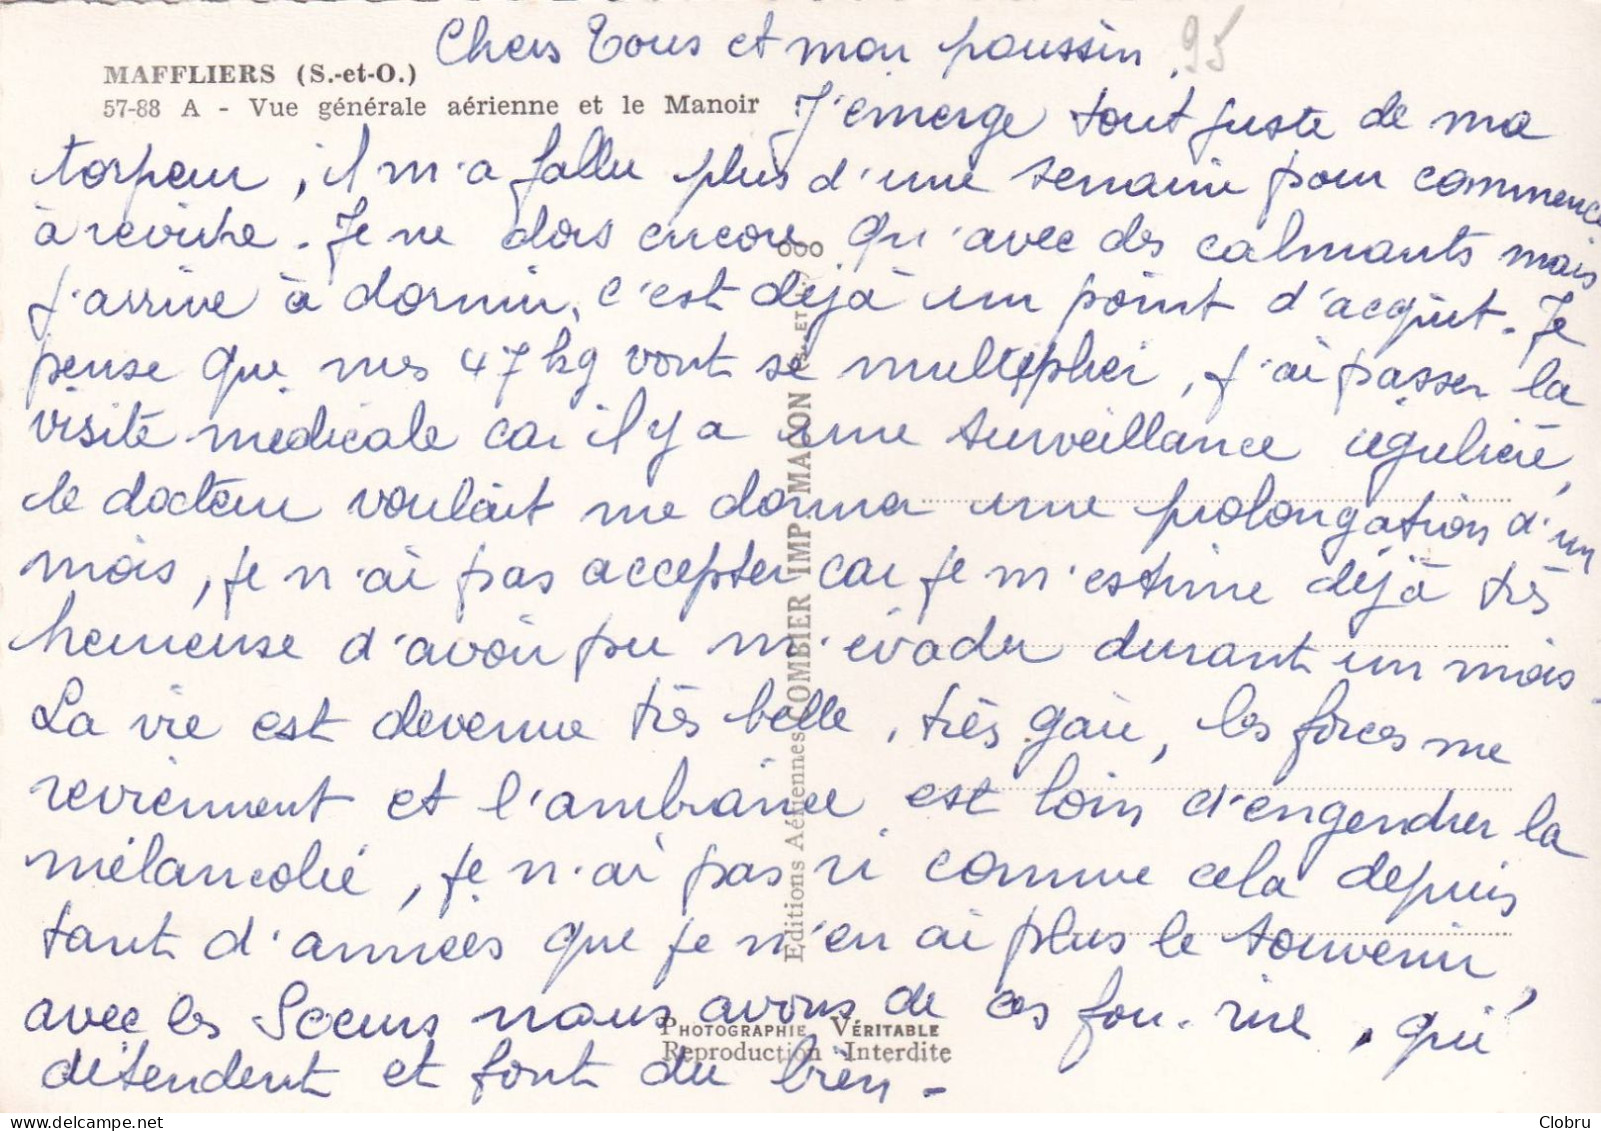 Chers Tous et mon poussin. 95
MAFFLIERS (S.-et-O.)
57-88 A - Vue générale aérienne et le Manoir
J'émerge tout juste de ma
torpeur, il m'a fallu plus d'une semaine pour commencer
à revivre. Je ne dors encore qu'avec des calmants mais
j'arrive à dormir, c'est déjà un point d'acquit. Je
pense que mes 47 kg vont se multiplier, j'ai passer la
visite médicale car il y a une surveillance régulière,
le docteur voulait me donner une prolongation d'un
mois, je n'ai pas accepter car je m'estime déjà très
heureuse d'avoir pu m'évader durant un mois.
La vie est devenue très belle, très gaie, les forces me
reviennent et l'ambiance est loin d'engendrer la
mélancolie, je n'ai pas ri comme cela depuis
tant d'années que je n'en ai plus le souvenir,
avec les Soeurs nous avons de ces fou-rire, qui
détendent et font du bien -
Editions Aériennes COMBIER IMP MACON
PHOTOGRAPHIE VÉRITABLE
Reproduction Interdite
Clobru